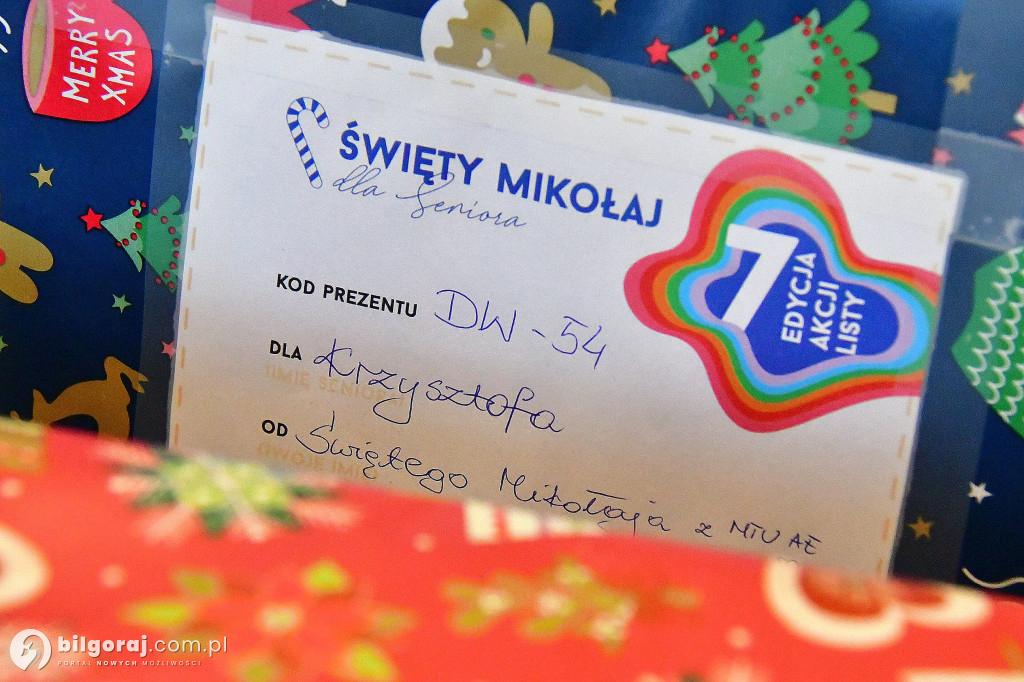 MERRY
XMAS
ŚWIĘTY MIKOŁAJ
dla Seniora
7
EDYCJA
AKCJI
LISTY
KOD PREZENTU DW-54
DLA Krzysztofa
(IMIĘ SENIORA)
OD Świętego Mikołaja z MTU AE
(TWOJE IMIĘ
bilgoraj.com.pl
PORTAL NOWYCH MOŻLIWOŚCI